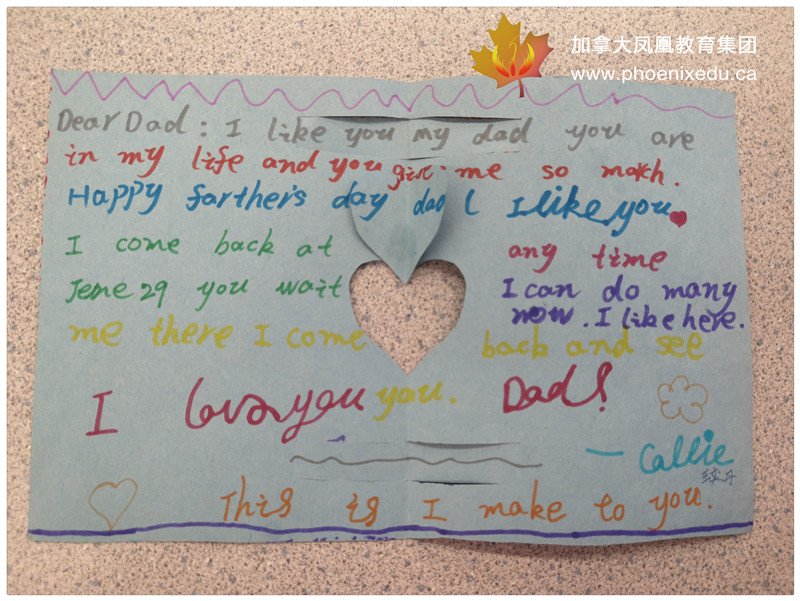 加拿大凤凰教育集团
www.phoenixedu.ca
Dear Dad : I like you my dad you are
in my life and you give me so match.
Happy farther's day dad I like you
I come back at any time
Jene 29 you wait I can do many
now. I like here.
me there I come back and see
I love you you. Dad!
— Callie
This is I make to you.